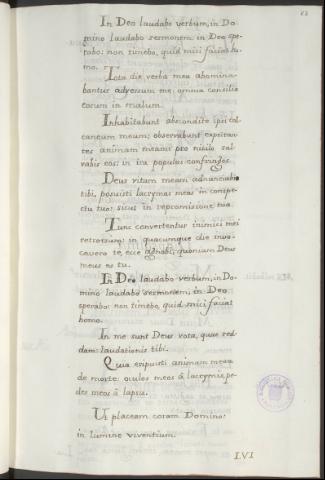 In Deo laudabo verbum, in Do-
mino laudabo sermonem: in Deo spe-
rabo: non timebo, quid mici faciat ho-
mo.
Tota die verba mea abomina-
bantur: adversum me, omnia consilia
eorum in malum.
Inhabitabunt abscondite ipsi cal-
caneum meum: observabunt expectan-
tes animam meam: pro nihilo sal-
vabis eos: in ira populus confringes.
Deus vitam meam adnuntiabo
tibi, posuisti lacrymas meas in conspe-
ctu tuo: sicut in repromissione tua.
Tunc convertentur inimici mei
retrorsum: in quacumque die invo-
cavero te, ecce agnobi, quoniam Deus
meus es tu.
In Deo laudabo verbum, in Do-
mino laudabo sermonem, in Deo
sperabo: non timebo, quid mici faciat
homo.
In me sunt Deus vota, quae red-
dam: laudationis tibi.
Quia eripuisti animam meam
de morte: oculos meos á lacrymis, pe-
des meos á lapsu.
Ut placeam coram Domino:
in lumine viventium.
LVI